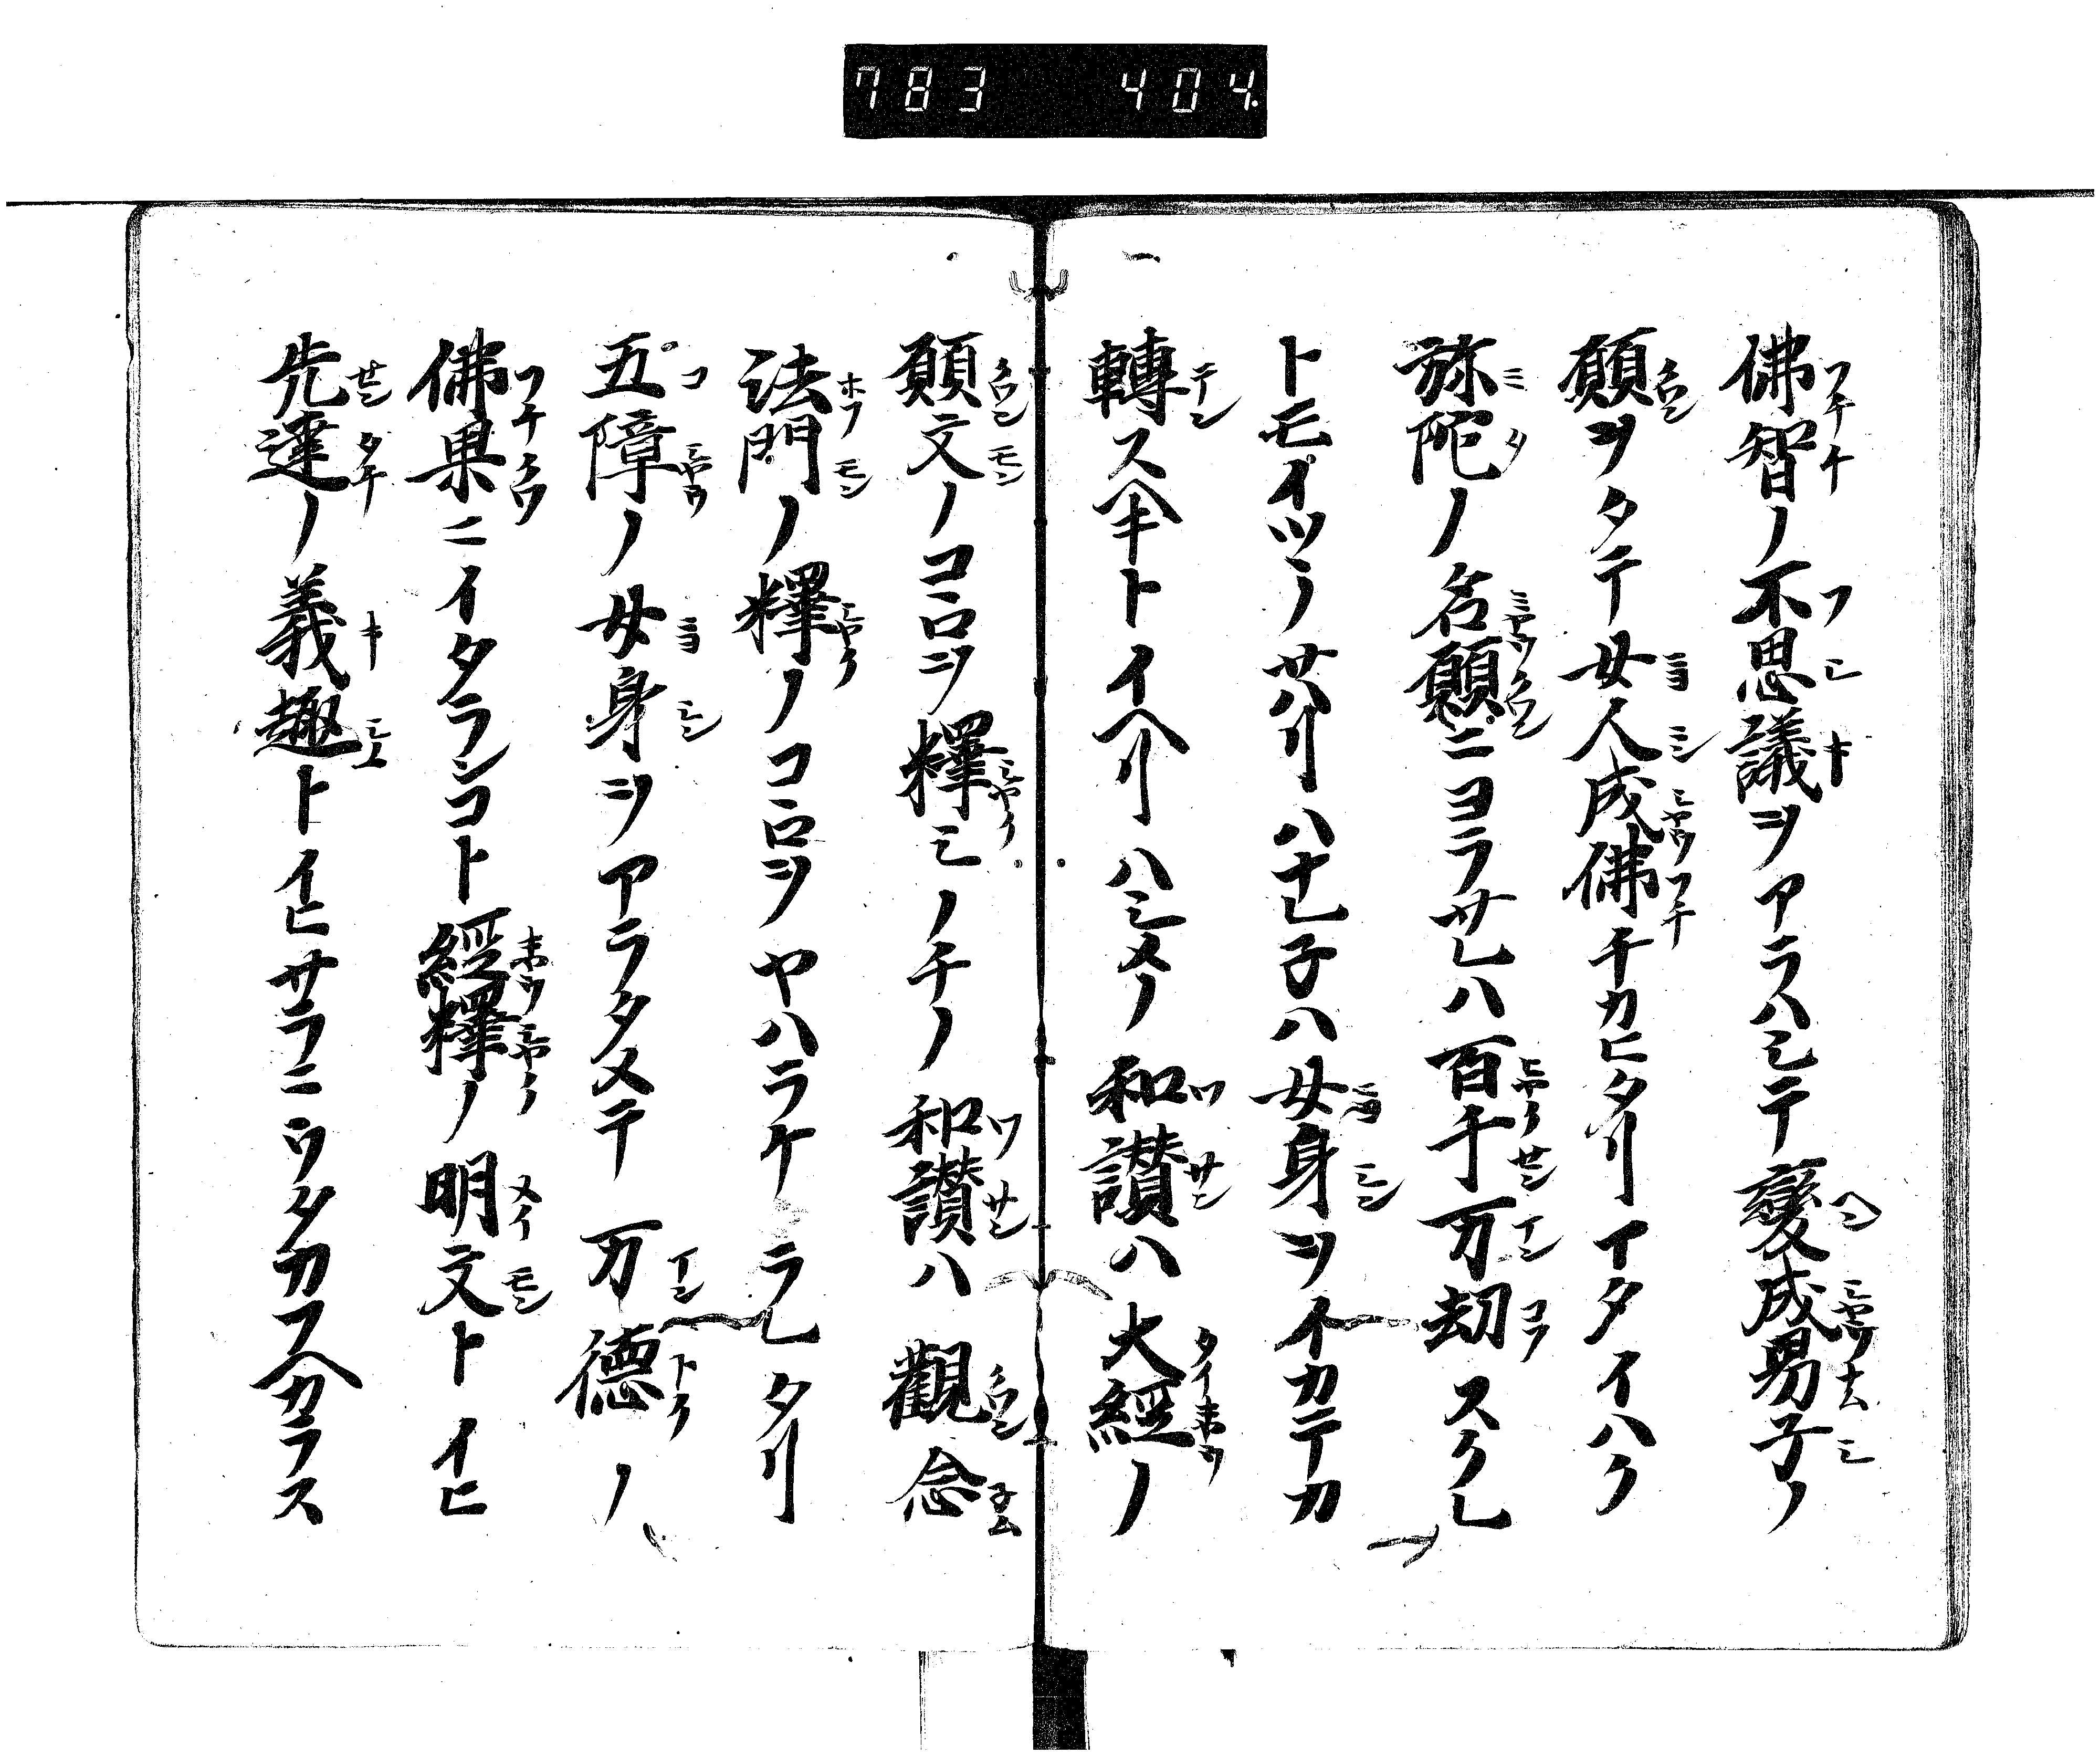 783 404
佛智ノ不思議ヲアラハシテ變成男子ノ
願ヲタテ女人成佛チカヒタリイタイハク
弥陀ノ名願ニヨラサレハ百千万劫スクレ
トモイツヽノサハリハナレネハ女身ヲイカテカ
轉スヘキトイヘリハシメノ和讃ハ大經ノ
願文ノコヽロヲ釋シノチノ和讃ハ觀念
法門ノ釋ノコヽロヲヤハラケラレタリ
五障ノ女身ヲアラタメテ万德ノ
佛果ニイタランコト經釋ノ明文トイヒ
先達ノ義趣トイヒサラニウタカフヘカラス